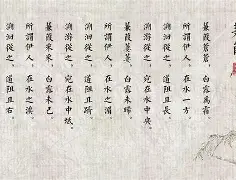 蒹葭蒼蒼，白露為霜。
所謂伊人，在水一方。
溯洄從之，道阻且長。
溯游從之，宛在水中央。
蒹葭萋萋，白露未晞。
所謂伊人，在水之湄。
溯洄從之，道阻且躋。
溯游從之，宛在水中坻。
蒹葭采采，白露未已。
所謂伊人，在水之涘。
溯洄從之，道阻且右。